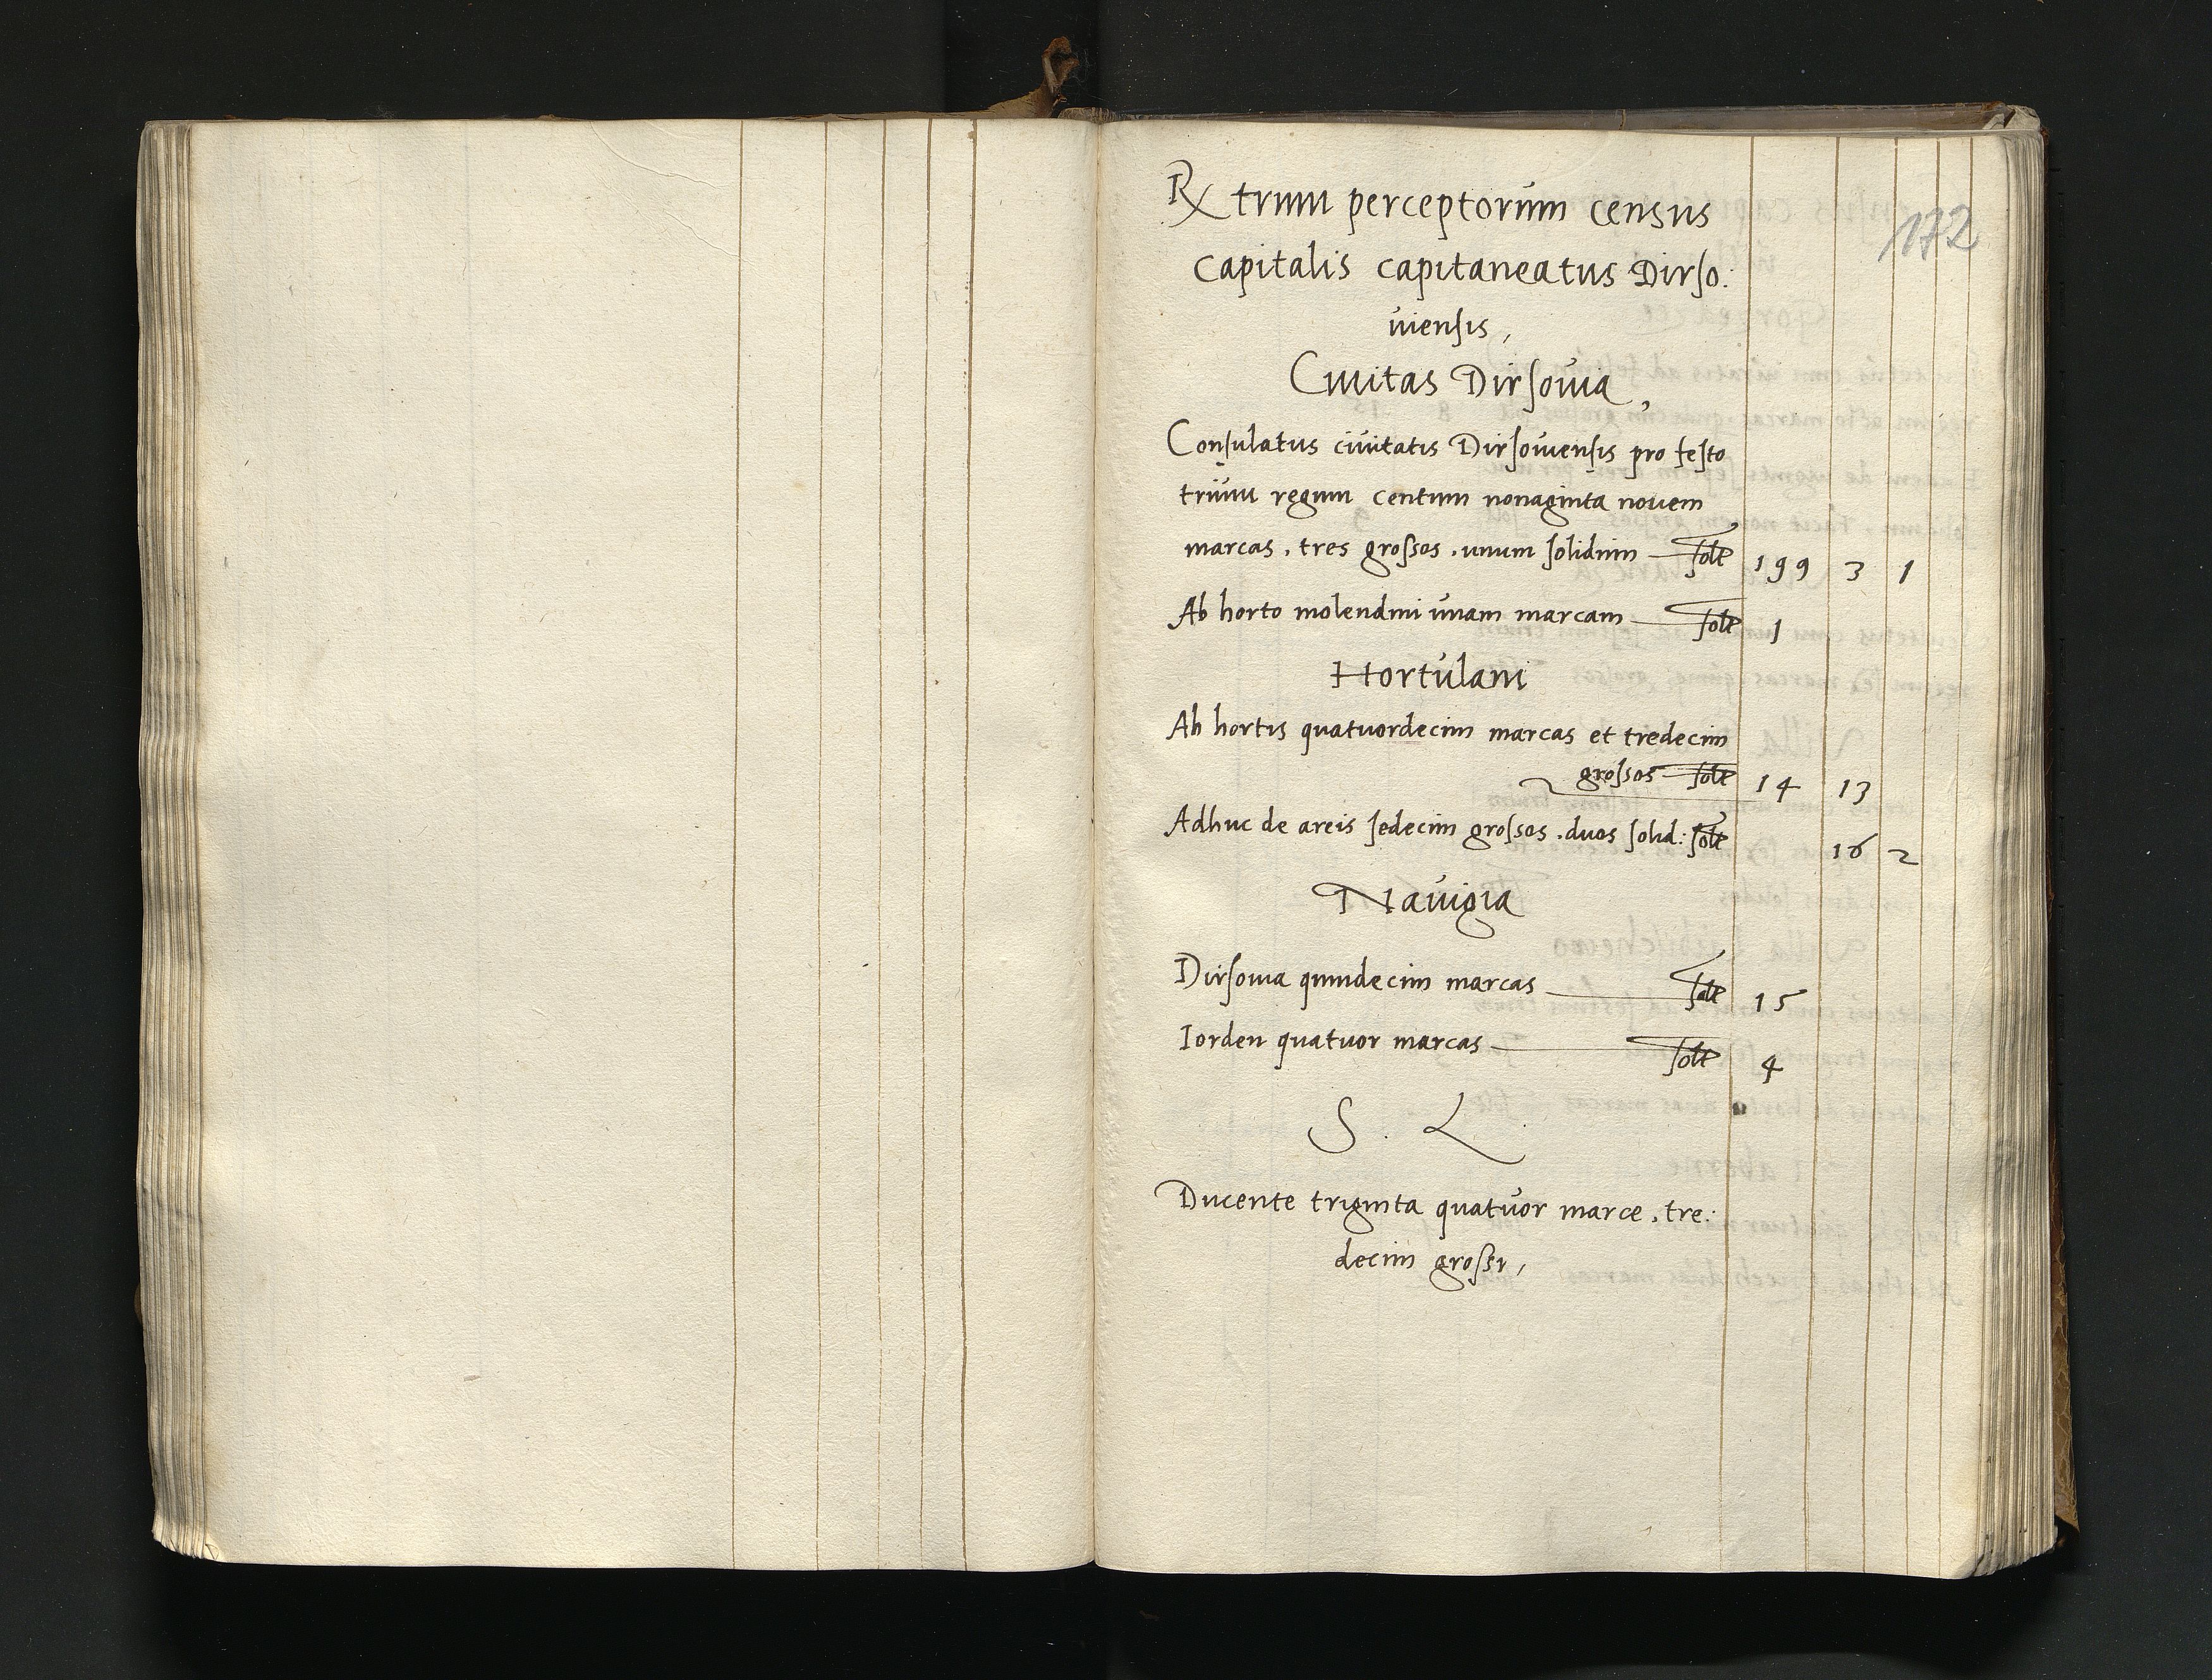 Rx trum perceptorum census
172
capitalis capitaneatus Dirso:
uiensis,
Ciuitas Dirsouia,
Consulatus ciuitatis Dirsouiensis pro festo
trium regum centum nonaginta nouem
marcas, tres grossos, unum solidum — solt 199 3 1
Ab horto molendini unam marcam — solt 1
Hortulani
Ab hortis quatuordecim marcas et tredecim
grossos — solt 14 13
Adhuc de areis sedecim grossos, duos solid: solt 16 2
Nauigia
Dirsouia quindecim marcas — solt 15
Iorden quatuor marcas — solt 4
S. L.
Ducente triginta quatuor marce, tre:
decim grossi,